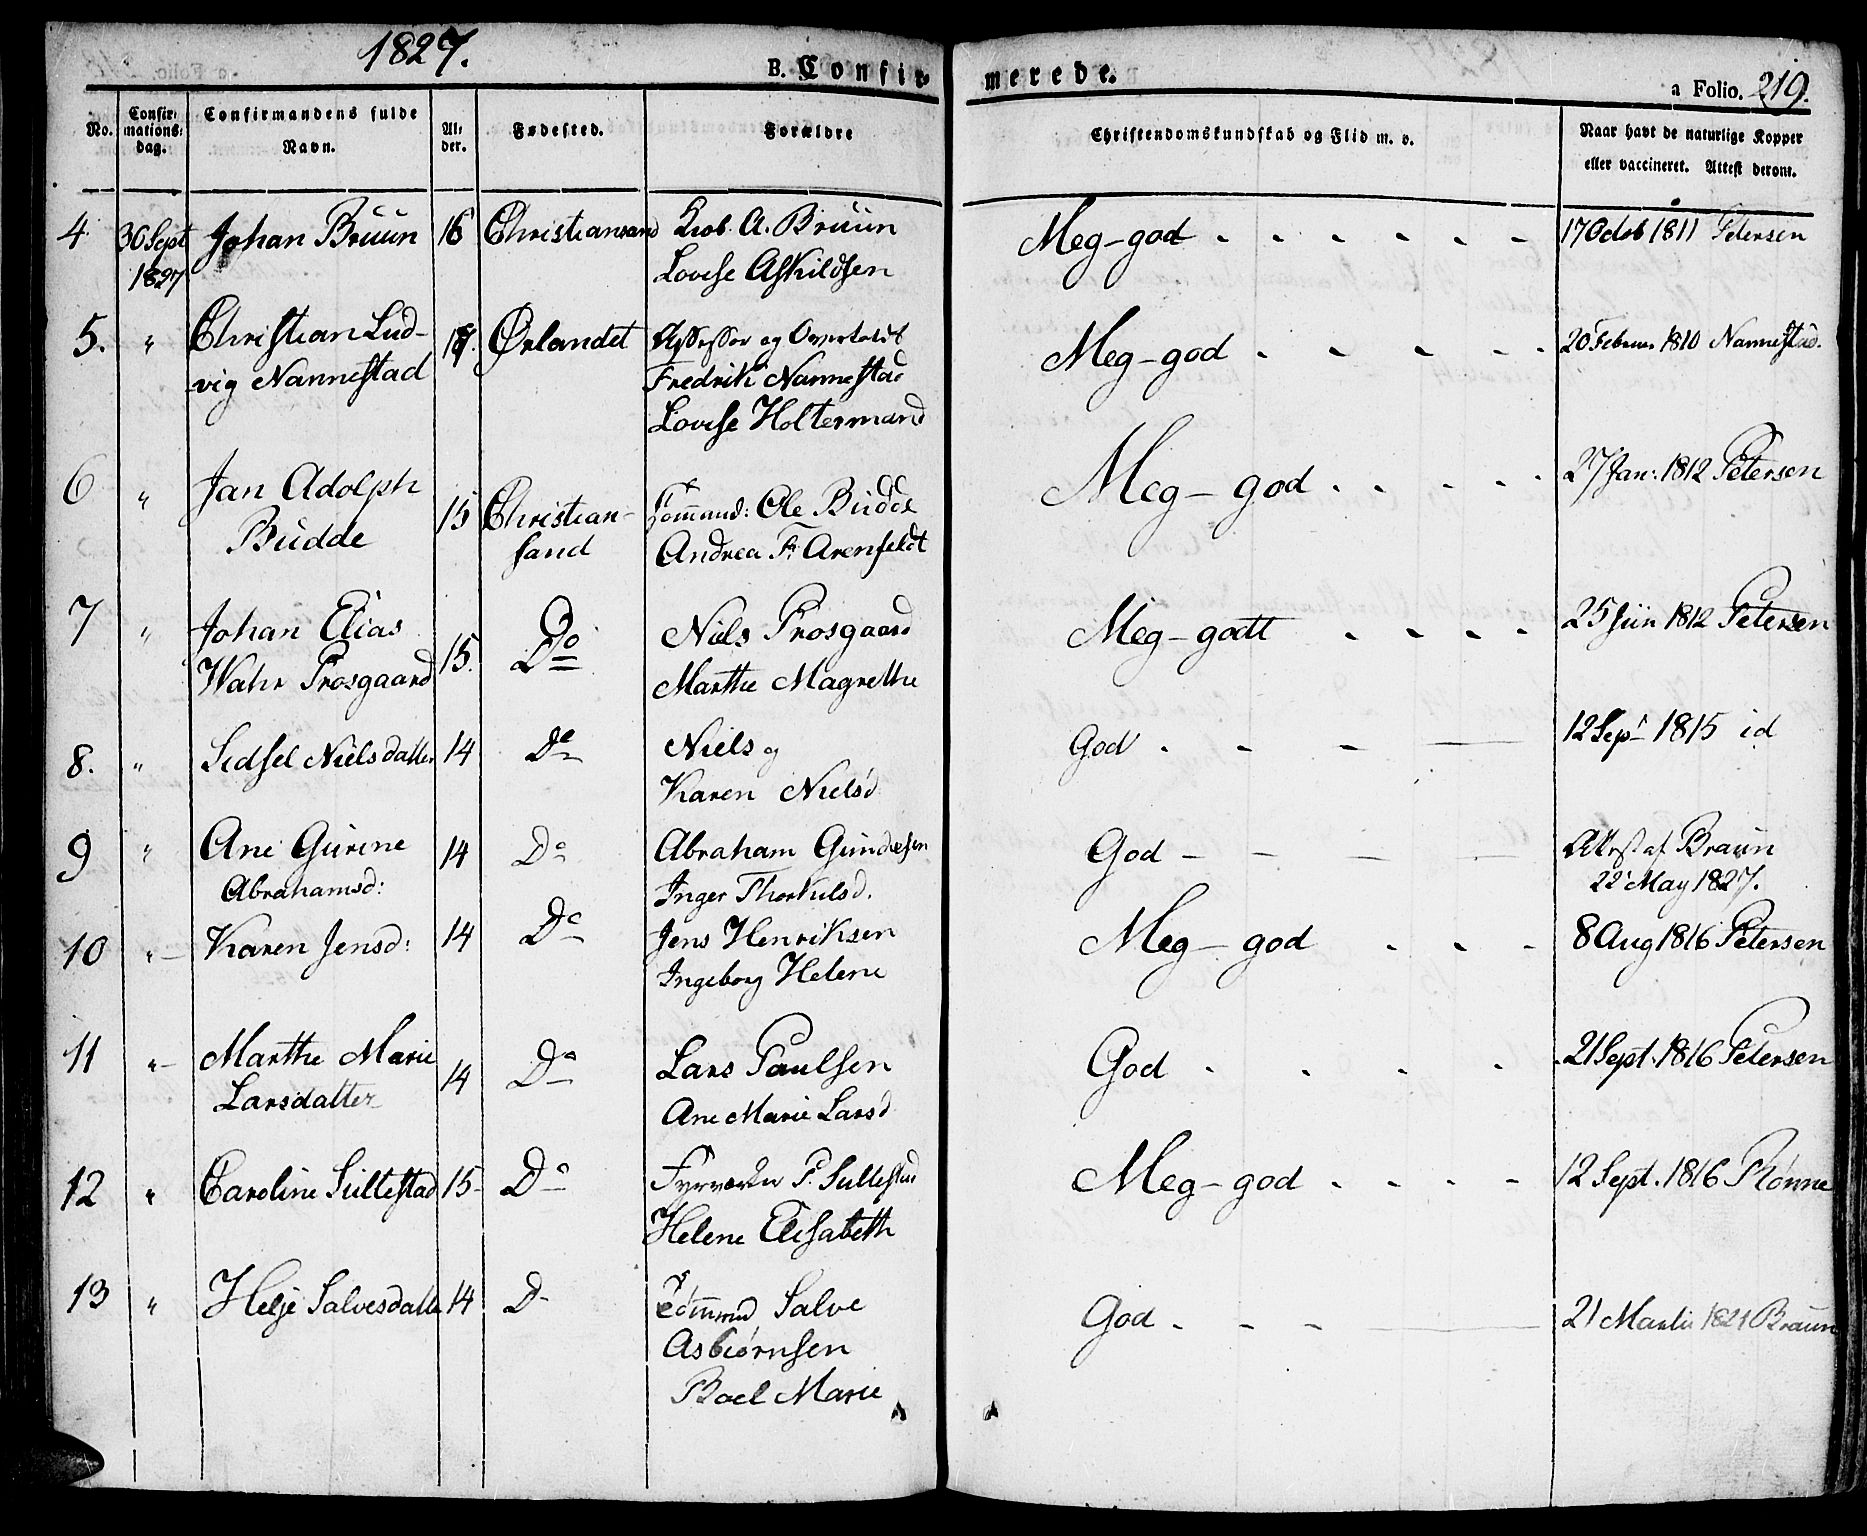 1827.
B. Confir-
merede.
a Folio. 219.
No.
Confir-
mations-
dag.
Confirmandens fulde
Navn.
Al-
der.
Fødested.
Forældre
Christendomskundskab og Flid m. v.
Naar havt de naturlige Kopper
eller vaccineret. Attest derom.
4. 30 Sept Johan Brüün 16 Christiansand A. Brüün Meg-god 17 Octob 1811 Petersen
1827 Lovise Askildsen
5. " Christian Lud- Ørlandet Assessor og
vig Nannestad Fredrik Nannestad Meg-god 20 Februar 1810 Nannestad.
Lovise Holtermand
6 " Jan Adolph 15 Christian- Ole Büdde Meg-god 27 Jan: 1812 Petersen
Büdde sand Andrea Fr. Arenfeldt
7 " Johan Elias 15. Do Niels Prosgaard Meg-godt 25 Jun 1812 Petersen
Wahr Prosgaard Marthe Magrethe
8. " Sidsel Nielsdatter 14 Do Niels og God 12 Sept 1815 id
Karen Nielsd
9 " Ane Gurine 14 Do Abraham Gundersen God Attest af Braun
Abrahamsd: Inger Thorkilsd. 22 May 1827.
10 " Karen Jensd: 14 Do Jens Henriksen Meg-god 8 Aug 1816 Petersen
Ingeborg Helene
11 " Marthe Marie 14 Do Lars Paulsen God 21 Sept. 1816 Petersen
Larsdatter Ane Marie Larsd
12 " Caroline Sültestad 15 Do Fyrverker P. Sultestad Meg-god 12 Sept. 1816 Rønne
Helene Elisabeth
13 " Helje Salvesdatter 14 D- Salve God 21 Martii 1821 Braun
Asbiørnsen
Boel Marie